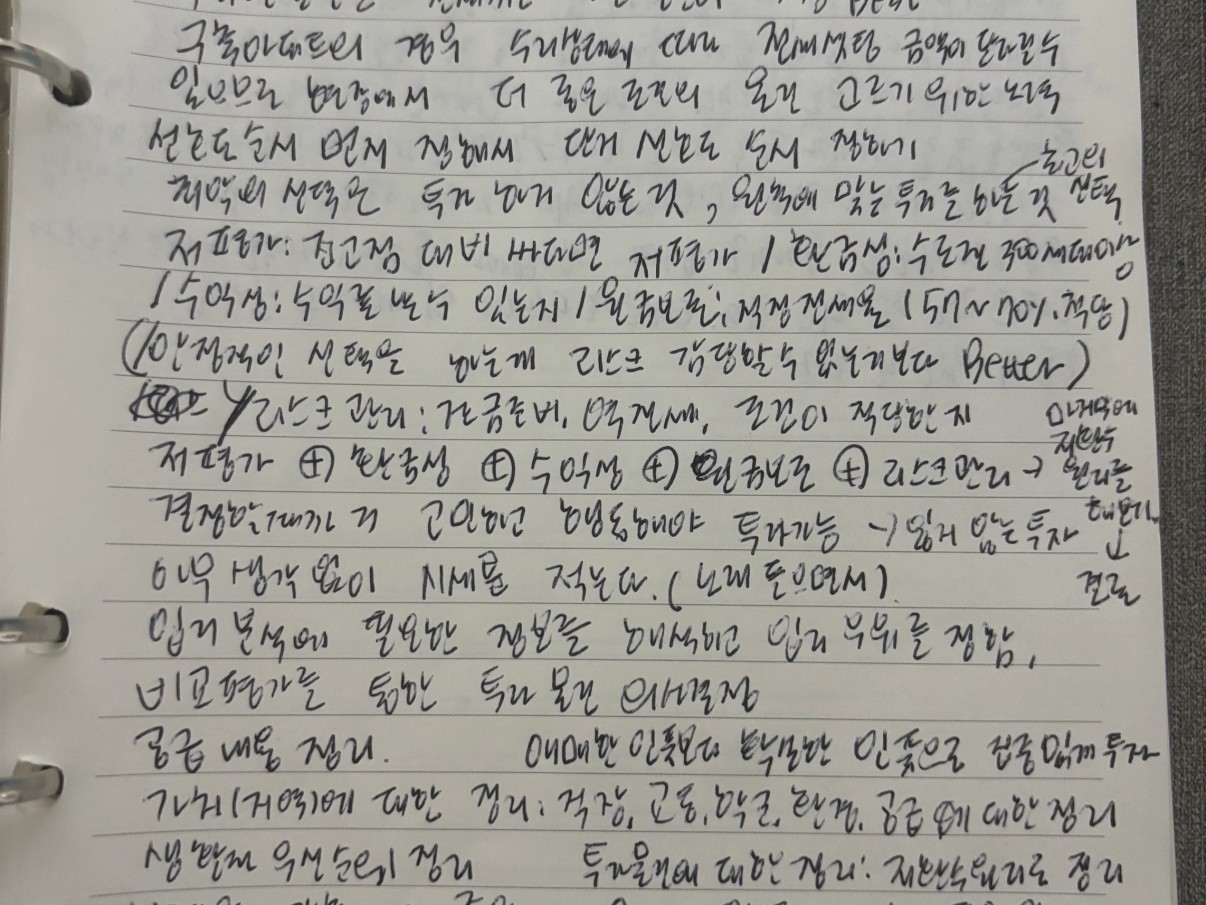 구축아파트의 경우 수리상태에 따라 전세셋팅 금액이 달라질수
있으므로 현장에서 더 좋은 조건의 물건 고르기 위한 노력
선호도 순서 먼저 정해서 단지 선호도 순서 정하기
최악의 선택은 투자 하지 않는 것, 원칙에 맞는 투자를 하는 것 최고의 선택
저평가: 전고점 대비 싸다면 저평가 / 환금성: 수도권 300세대이상
/ 수익성: 수익률 낼 수 있는지 / 원금보존: 적정전세율 (57~70%. 적당)
(/안정적인 선택을 하는게 리스크 감당할수 없는거보다 Better)
/리스크 관리: 잔금준비, 역전세, 조건이 적당한지
저평가 ⊕ 환금성 ⊕ 수익성 ⊕ 원금보존 ⊕ 리스크관리 → 마지막에 저환수원리를 해보기 ↓ 결론
결정할때까지 고민하고 행동해야 투자가능 → 잃지 않는 투자
아무 생각 없이 시세를 적는다. (노래 들으면서)
입지 분석에 필요한 정보를 해석하고 입지 우위를 정함.
비교평가를 통한 투자 물건 의사결정
공급 내용 정리. 애매한 인풋보다 확실한 인풋으로 집중있게 투자
가치(지역)에 대한 정리: 직장, 교통, 학군, 환경, 공급에 대한 정리
생활권 우선순위 정리 투자물건에 대한 정리: 저환수원리로 정리